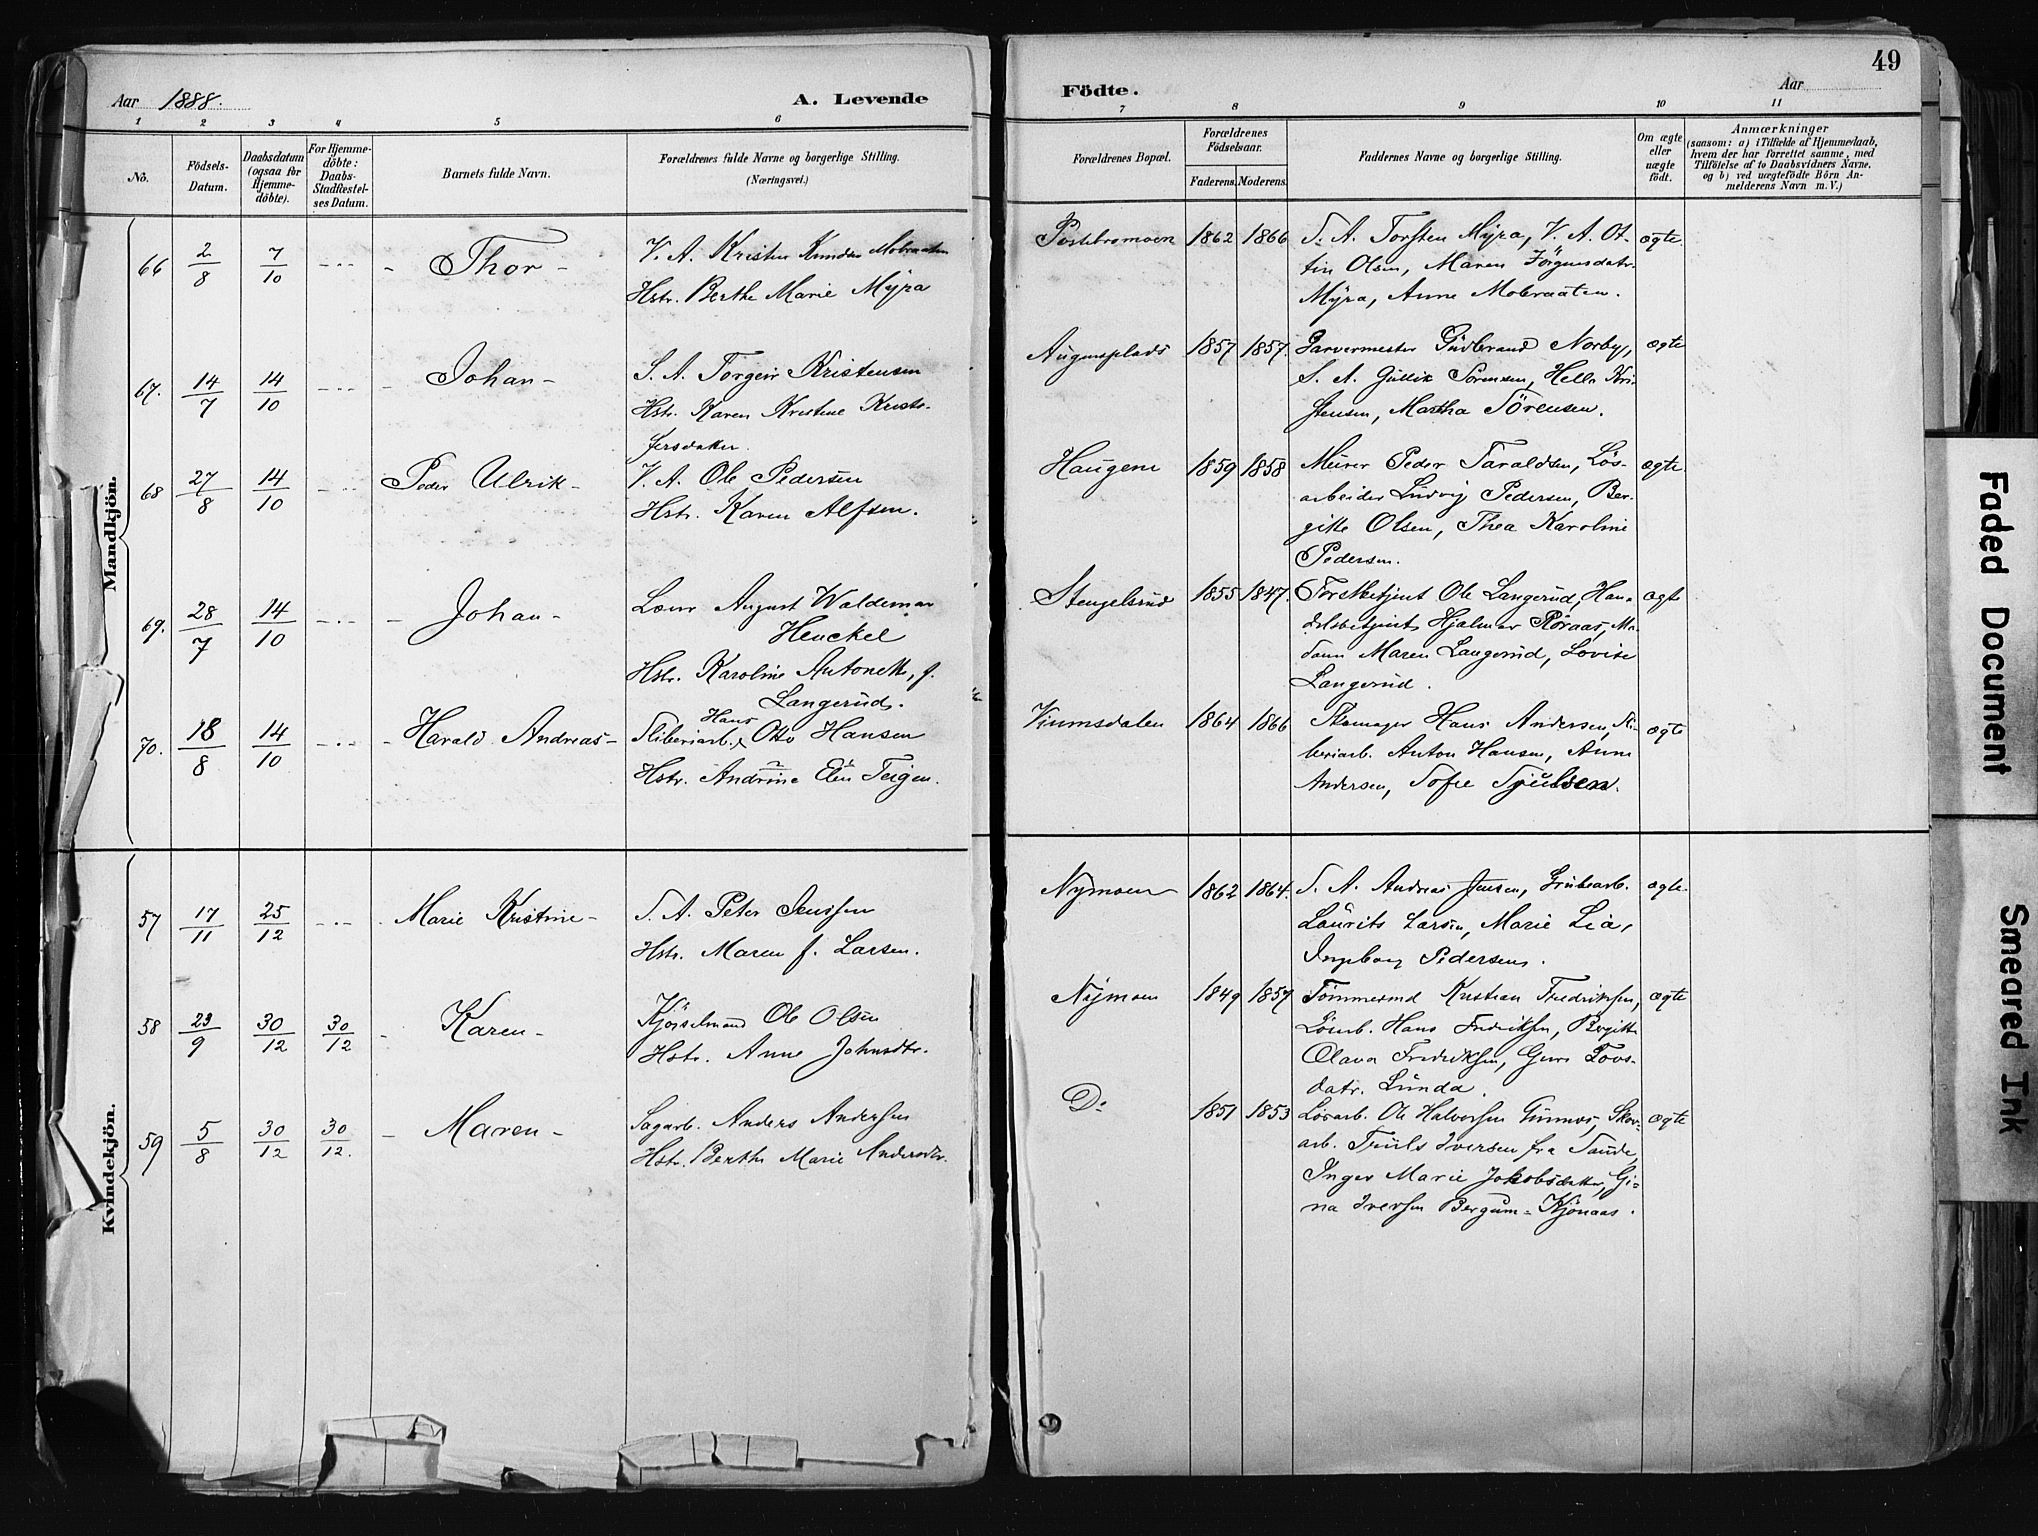 Aar 1888.
A. Levende
1 2 3 4 5 6
No.
Födsels-
Datum.
Daabsdatum
(ogsaa for
Hjemme-
döbte).
For Hjemme-
döbte:
Daabs-
Stadfæstel-
ses Datum.
Barnets fulde Navn.
Forældrenes fulde Navne og borgerlige Stilling.
(Næringsvei.)
Mandkjön.
66 2/8 7/10 Thor
V. A. Kristen Knudsen Mobraaten
Hstr. Berthe Marie Myra
67. 14/7 14/10 Johan
S. A. Torgeir Kristensen
Hstr. Karen Kristine Kristo-
fersdatter.
68 27/8 14/10 Peder Ulrik
V. A. Ole Pedersen
Hstr. Karen Alfsen.
69. 28/7 14/10 Johan
August Waldemar
Henckel
Hstr. Karoline Antonette, f.
Langerud.
70. 18/8 14/10 Harald Andreas
Hans
Sliberiarb. Otto Hansen
Hstr. Andrine Elen Teigen.
Kvindekjön.
57 17/11 25/12 Marie Kristine
S. A. Peter Jenssen
Hstr. Maren f. Larsen.
58 23/9 30/12 30/12 Karen
Kjörselmand Ole Olsen
Hstr. Anne Johnsdtr.
59 5/8 30/12 30/12. Maren
Sagarb. Anders Andersen
Hstr. Berthe Marie Andersdtr.
49
Födte.
Aar
7 8 9 10 11
Forældrenes Bopæl.
Forældrenes
Födselsaar.
Faderens. Moderens.
Faddernes Navne og borgerlige Stilling.
Om ægte
eller
uægte
födt.
Anmærkninger
(saasom: a) i Tilfælde af Hjemmedaab,
hvem der har forrettet samme, med
Tilföielse af to Daabsvidners Navne.
og b) ved uægtefödte Börn An-
melderens Navn m. V.)
1862 1866 S. A. Torsten Myra, V. A. Ot- ægte.
tin Olsen, Maren Jörgensdatr.
Myra, Anne Mobraaten.
Augunsplads 1857 1857. Garvermester Gudbrand Norby, ægte
S. A. Gullik Sörensen, Helle Kri-
stensen, Martha Sörensen.
Haugene 1859 1858 Murer Peder Taraldsen, Lös- ægte
arbeider Ludvig Pedersen, Ber-
gitte Olsen, Thea Karoline
Pedersen.
Stengelsrud 1855 1847. Forstbetjent Ole Langerud, Han- ægte
delsbetjent Hjalmar Röraas, Ma-
dam Maren Langerud, Lovise
Langerud.
Vinmsdalen 1864 1866 Skomager Hans Andersen, Sli- ægte
beriarb. Anton Hansen, Anne
Andersen, Sofie Tjulsen.
Nymoen 1862 1864. S. A. Andreas Jensen, Grubearb. ægte.
Laurits Larsen, Marie Lia,
Ingeborg Pedersen.
Nymoen 1849 1857 Tömmermd Kristian Fredriksen, ægte
Lösarb. Hans Fredriksen, Bergitte
Olava Fredriksen, Guro Tovs-
datr. Lunda.
Do 1851 1853 Lösarb. Ole Halvorsen Gunnes, Skov- ægte
arb. Truls Iversen fra Sande,
Inger Marie Jakobsdatter, Gi-
na Iversen Bergum-Kjönaas.
Faded Document
Smeared Ink